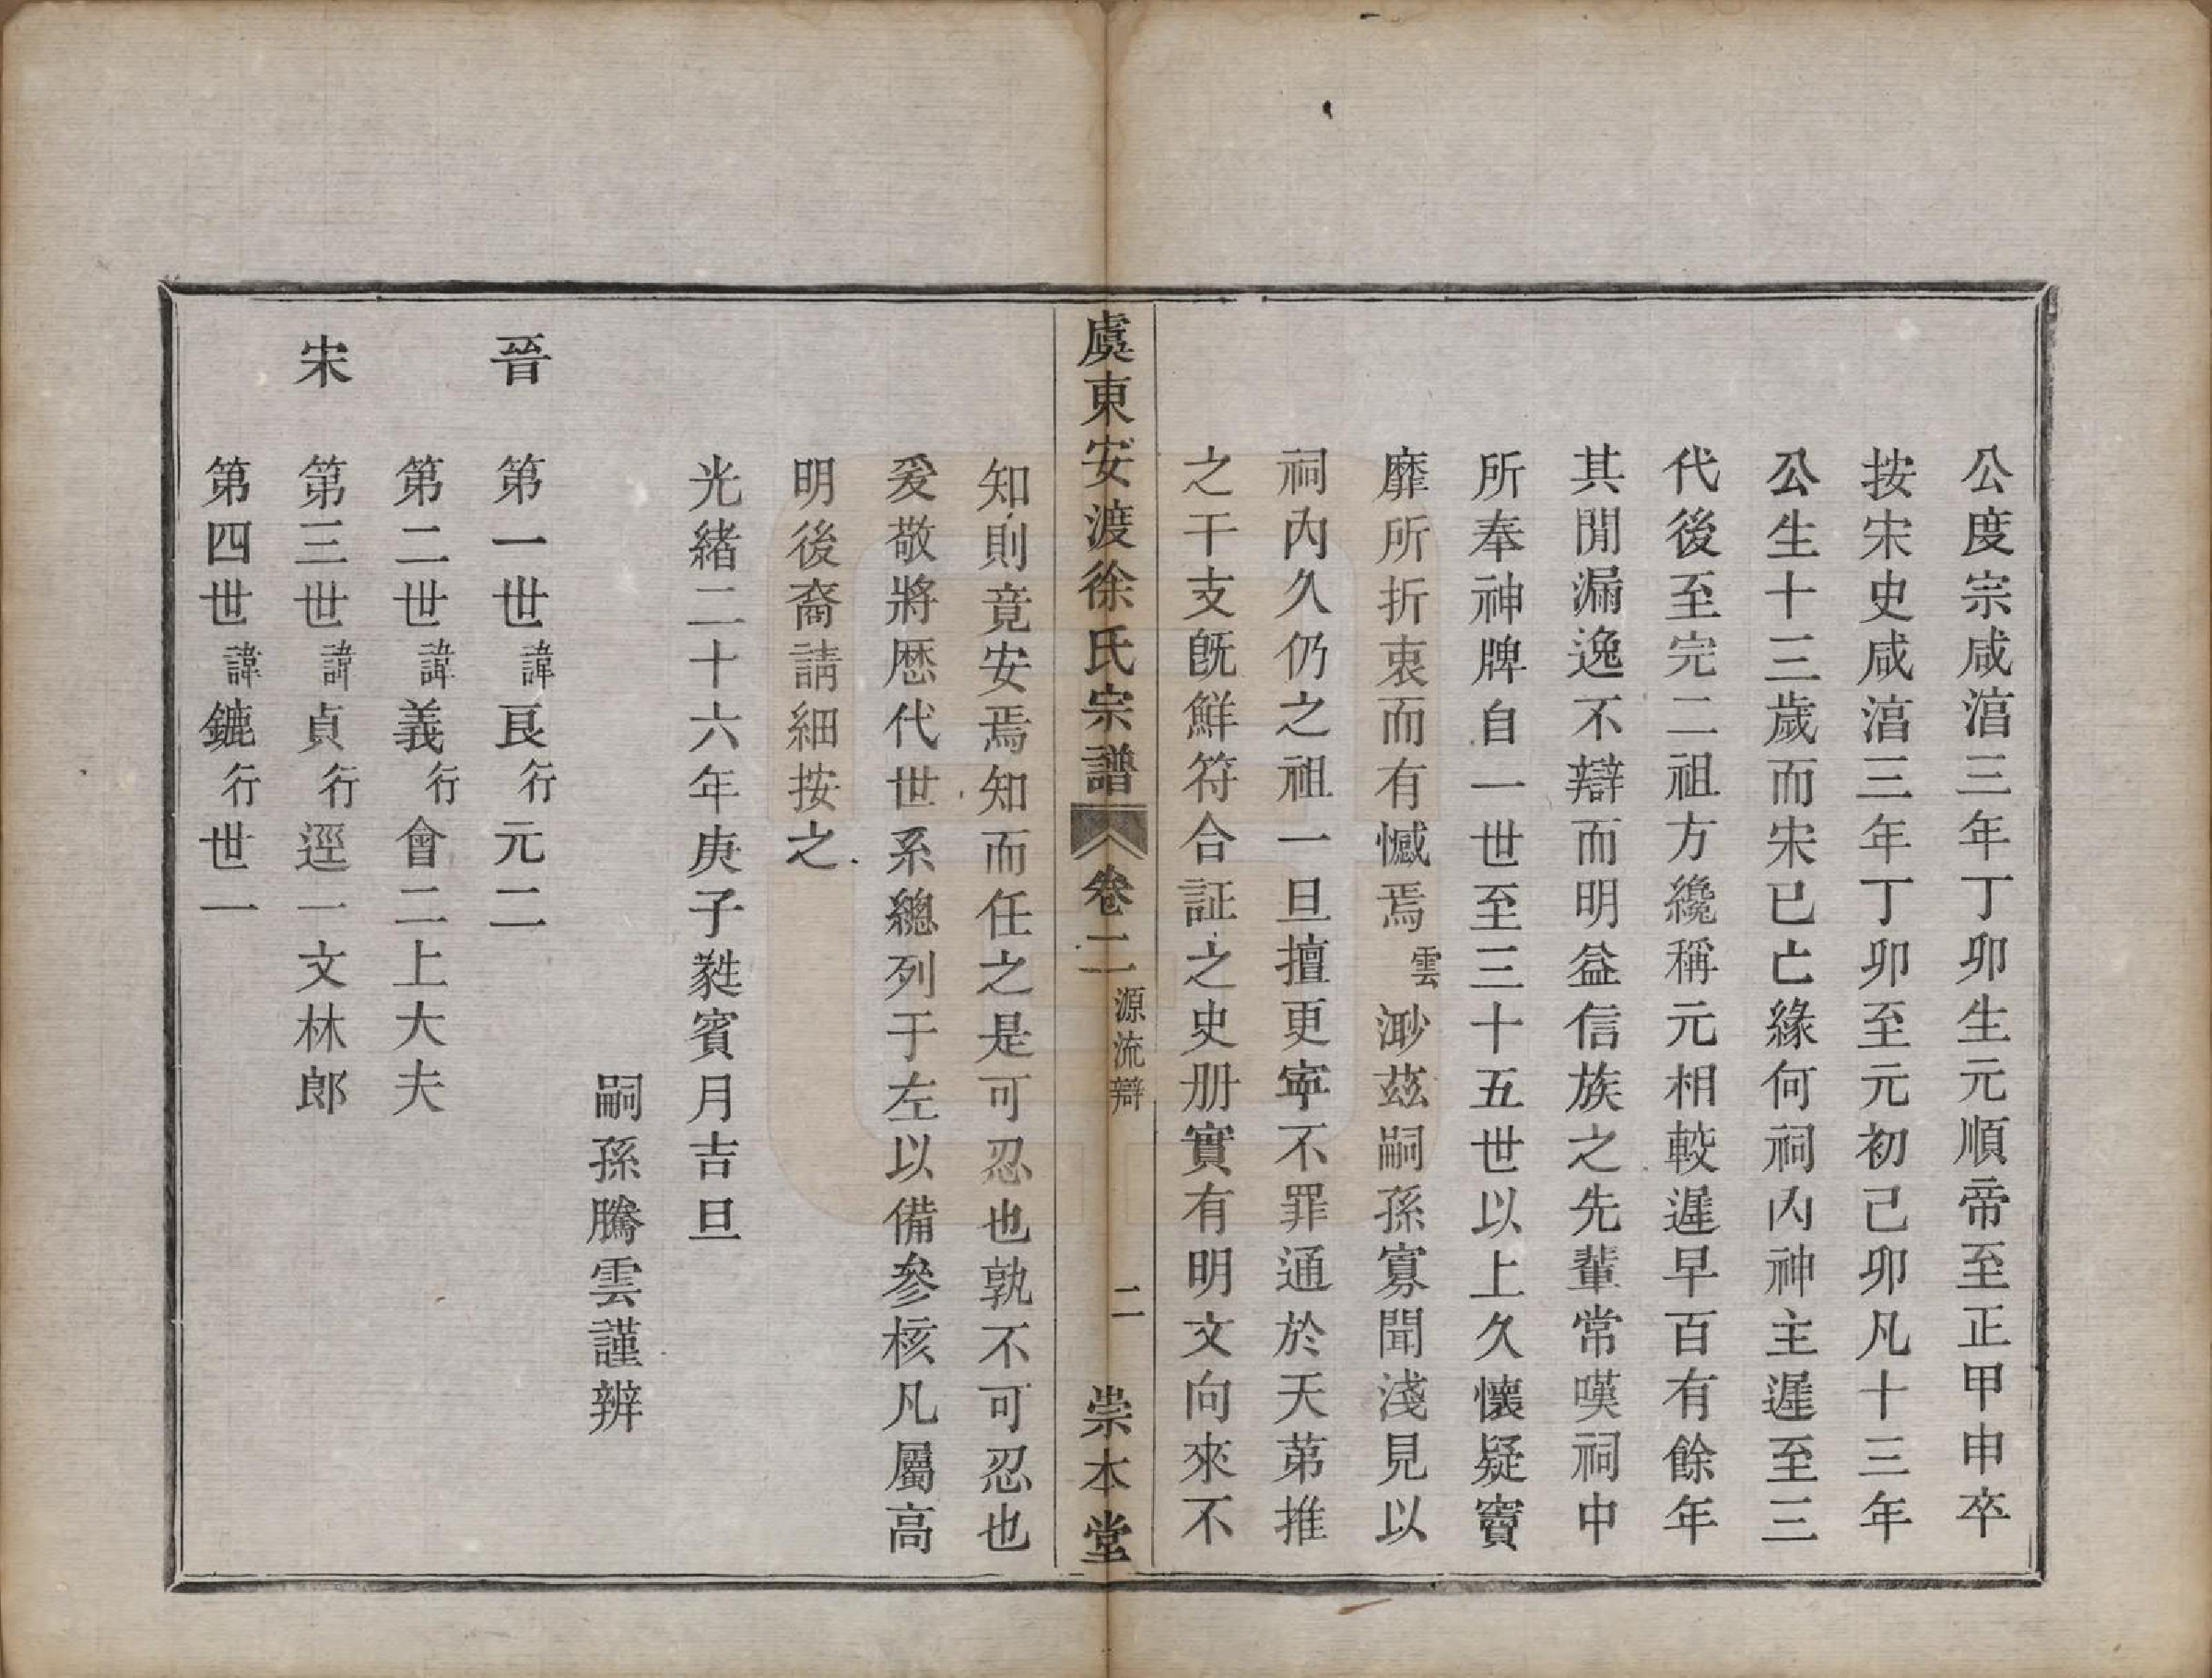 公度宗咸淳三年丁卯生元順帝至正甲申卒
按宋史咸淳三年丁卯至元初己卯凡十三年
公生十三歲而宋已亡緣何祠內神主遲至三
代後至完二祖方纔稱元相較遲早百有餘年
其閒漏逸不辯而明益信族之先輩常嘆祠中
所奉神牌自一世至三十五世以上久懷疑竇
靡所折衷而有憾焉雲渺茲嗣孫寡聞淺見以
祠內久仍之祖一旦擅更寧不罪通於天苐推
之干支旣鮮符合証之史册實有明文向來不
虞東安渡徐氏宗譜 卷二 源流辯 二 崇本堂
知則竟安焉知而任之是可忍也孰不可忍也
爰敬將歷代世系總列于左以備參核凡屬高
明後裔請細按之
光緒二十六年庚子蕤賓月吉旦
嗣孫騰雲謹辨
晉 第一世諱良行元二
第二世諱義行會二上大夫
宋 第三世諱貞行逕一文林郎
第四世諱鑣行世一